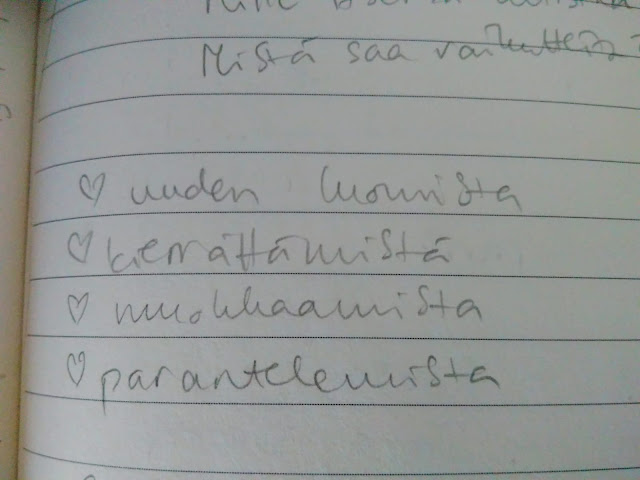 Mistä saa vaikutteita?
♡ uuden luomista
♡ kierrättämistä
♡ muokkaamista
♡ parantelemista